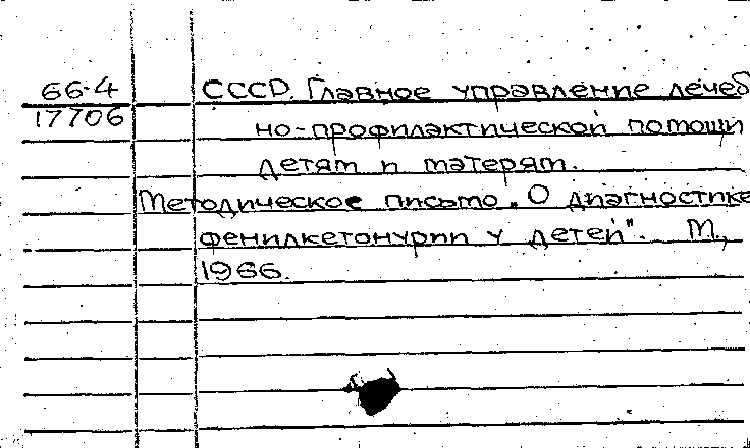 66-4 СССР. Главное управление лечеб
17706 но-профилактической помощи
детям и матерям.
Методическое письмо „О диагностике
фенилкетонурии у детей". М.,
1966.